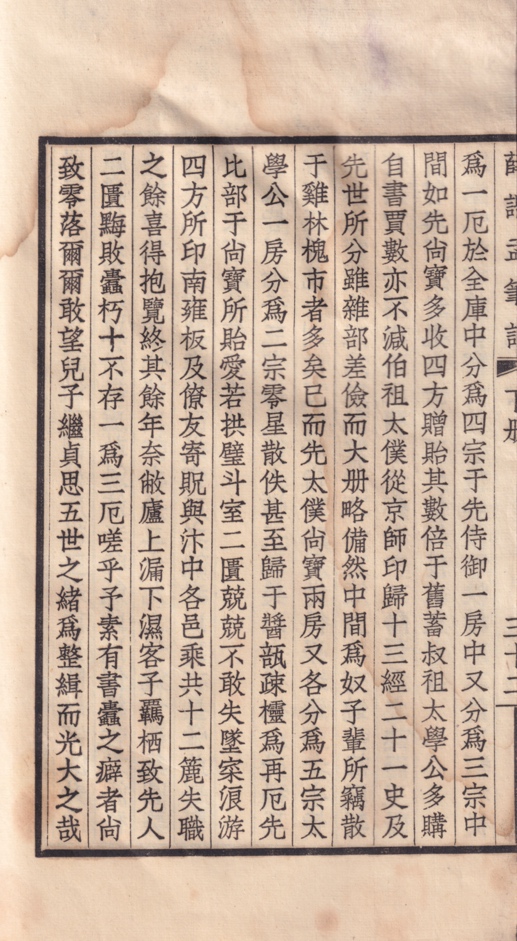 薛諧孟筆記 下册 三十二
爲一厄於全庫中分爲四宗于先侍御一房中又分爲三宗中
間如先尙寶多收四方贈貽其數倍于舊蓄叔祖太學公多購
自書賈數亦不減伯祖太僕從京師印歸十三經二十一史及
先世所分雖雜部差儉而大册略備然中間爲奴子輩所竊散
于雞林槐市者多矣已而先太僕尙寶兩房又各分爲五宗太
學公一房分爲二宗零星散佚甚至歸于醬瓿疎櫺爲再厄先
比部于尙寶所貽愛若拱璧斗室二匱兢兢不敢失墜寀浪游
四方所印南雍板及僚友寄貺與汴中各邑乘共十二簏失職
之餘喜得抱覽終其餘年奈敝廬上漏下濕客子羈栖致先人
二匱黣敗蠹朽十不存一爲三厄嗟乎予素有書蠹之癖者尙
致零落爾爾敢望兒子繼貞思五世之緒爲整緝而光大之哉